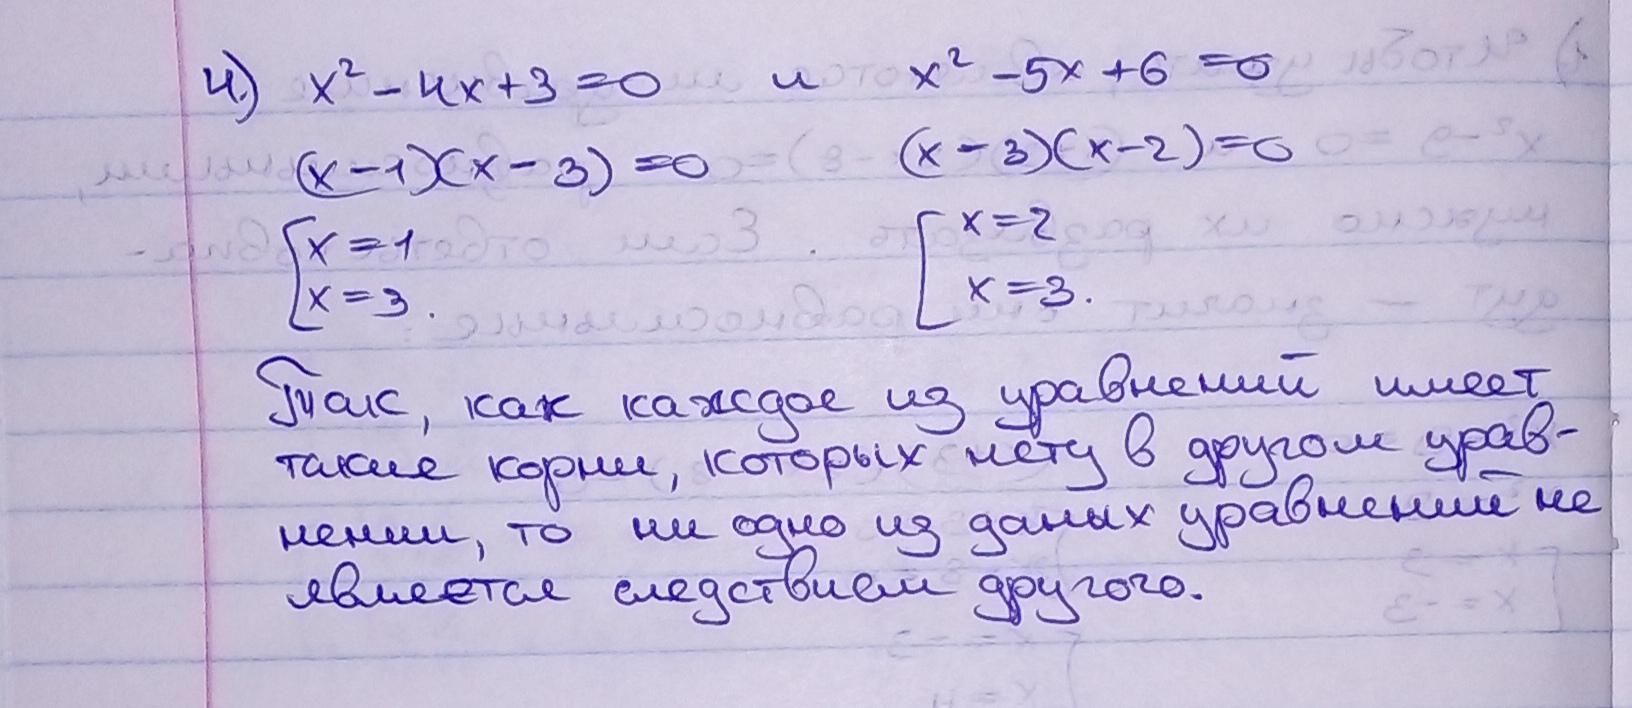 4.) x² - 4x + 3 = 0 и x² - 5x + 6 = 0
(x - 1)(x - 3) = 0 (x - 3)(x - 2) = 0
[x = 1 [x = 2
x = 3. x = 3.
Так, как каждое из уравнений имеет
такие корни, которых нету в другом урав-
нении, то ни одно из даных уравнений не
является следствием другого.